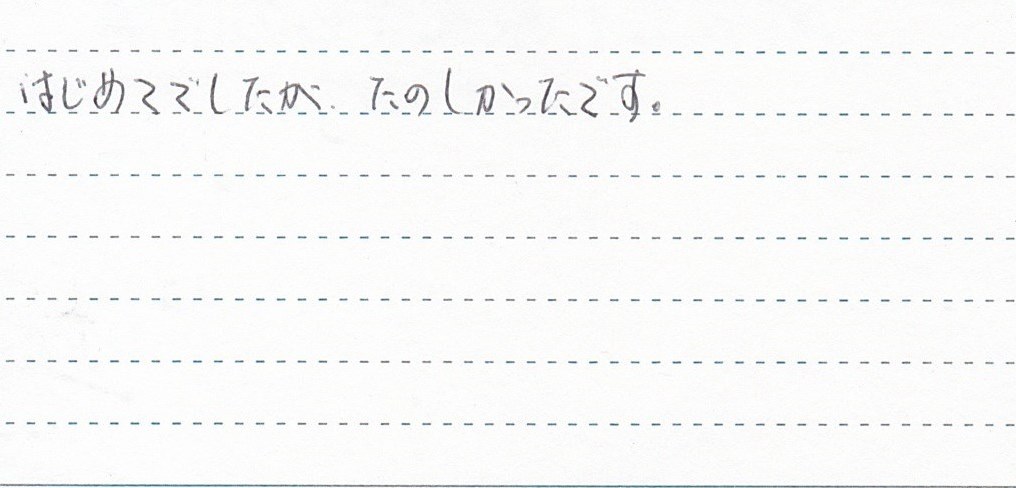 はじめてでしたが、たのしかったです。